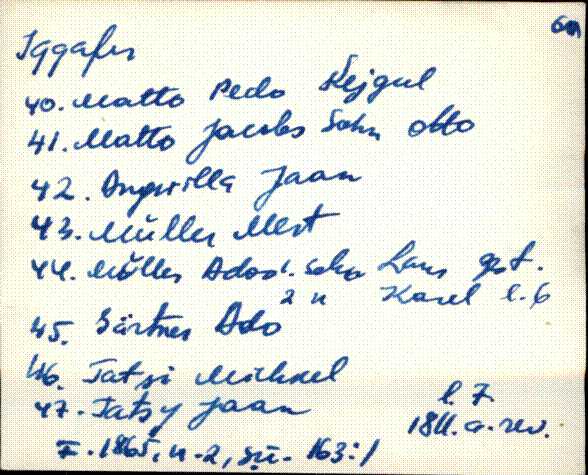 6a
Iggafer
40. Matto Pedo Kejgul
41. Matto Jacobs Sohn Otto
42. Jaan
43. Müller Mert
44. Müller Ados 1. Sohn Lars gest.
2 " Karel l. 6
45. Gärtner Ado
46. Tatsi Mihkel
47. Tatsy Jaan
l. 7
1811. a. rev.
F. 1865, n. 2, sü. 163:1